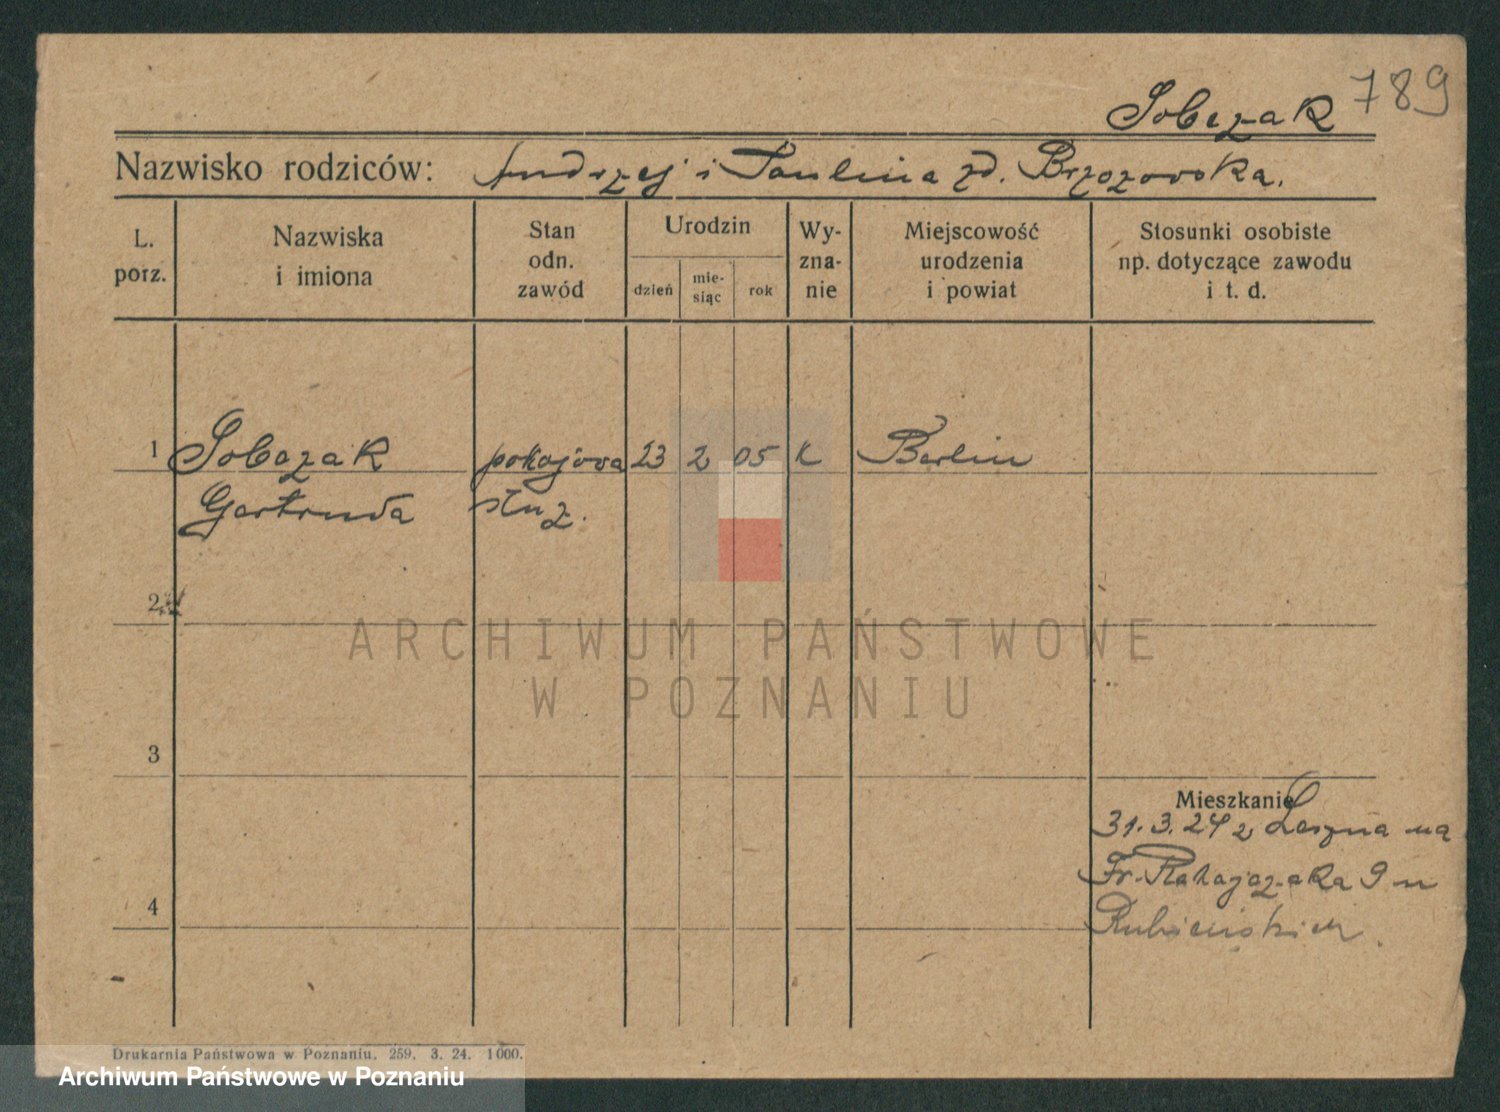 789
Sobczak
Nazwisko rodziców: Andrzej i Paulina zd. Brzozowska.
L. porz.
Nazwiska i imiona
Stan odn. zawód
Urodzin
dzień
mie-siąc
rok
Wy-zna-nie
Miejscowość urodzenia i powiat
Stosunki osobiste np. dotyczące zawodu i t. d.
1 Sobczak pokojowa 23 2 05 k Berlin
Gertruda służ.
2
ARCHIWUM PAŃSTWOWE
W POZNANIU
3
Mieszkanie
31.3.24 z Leszna na
Fr. Ratajczaka 9 u
4
Drukarnia Państwowa w Poznaniu. 259. 3. 24. 1000.
Archiwum Państwowe w Poznaniu